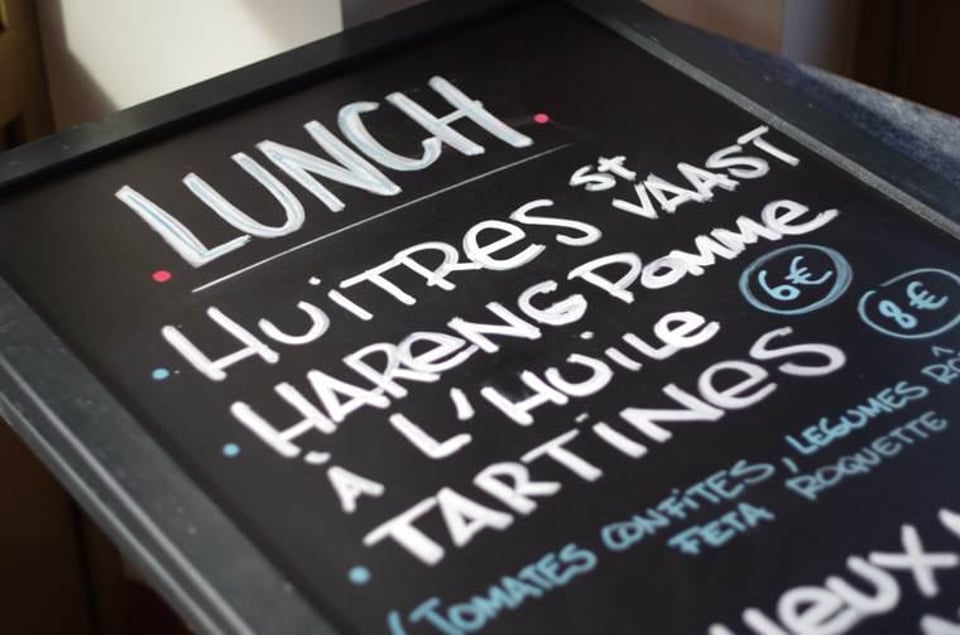 LUNCH
HUîTRES St VAAST
HARENG Pomme
À L'HUILE 6€
TARTINES 8€
(TOMATES CONFITES, LEGUMES
FETA ROQUETTE